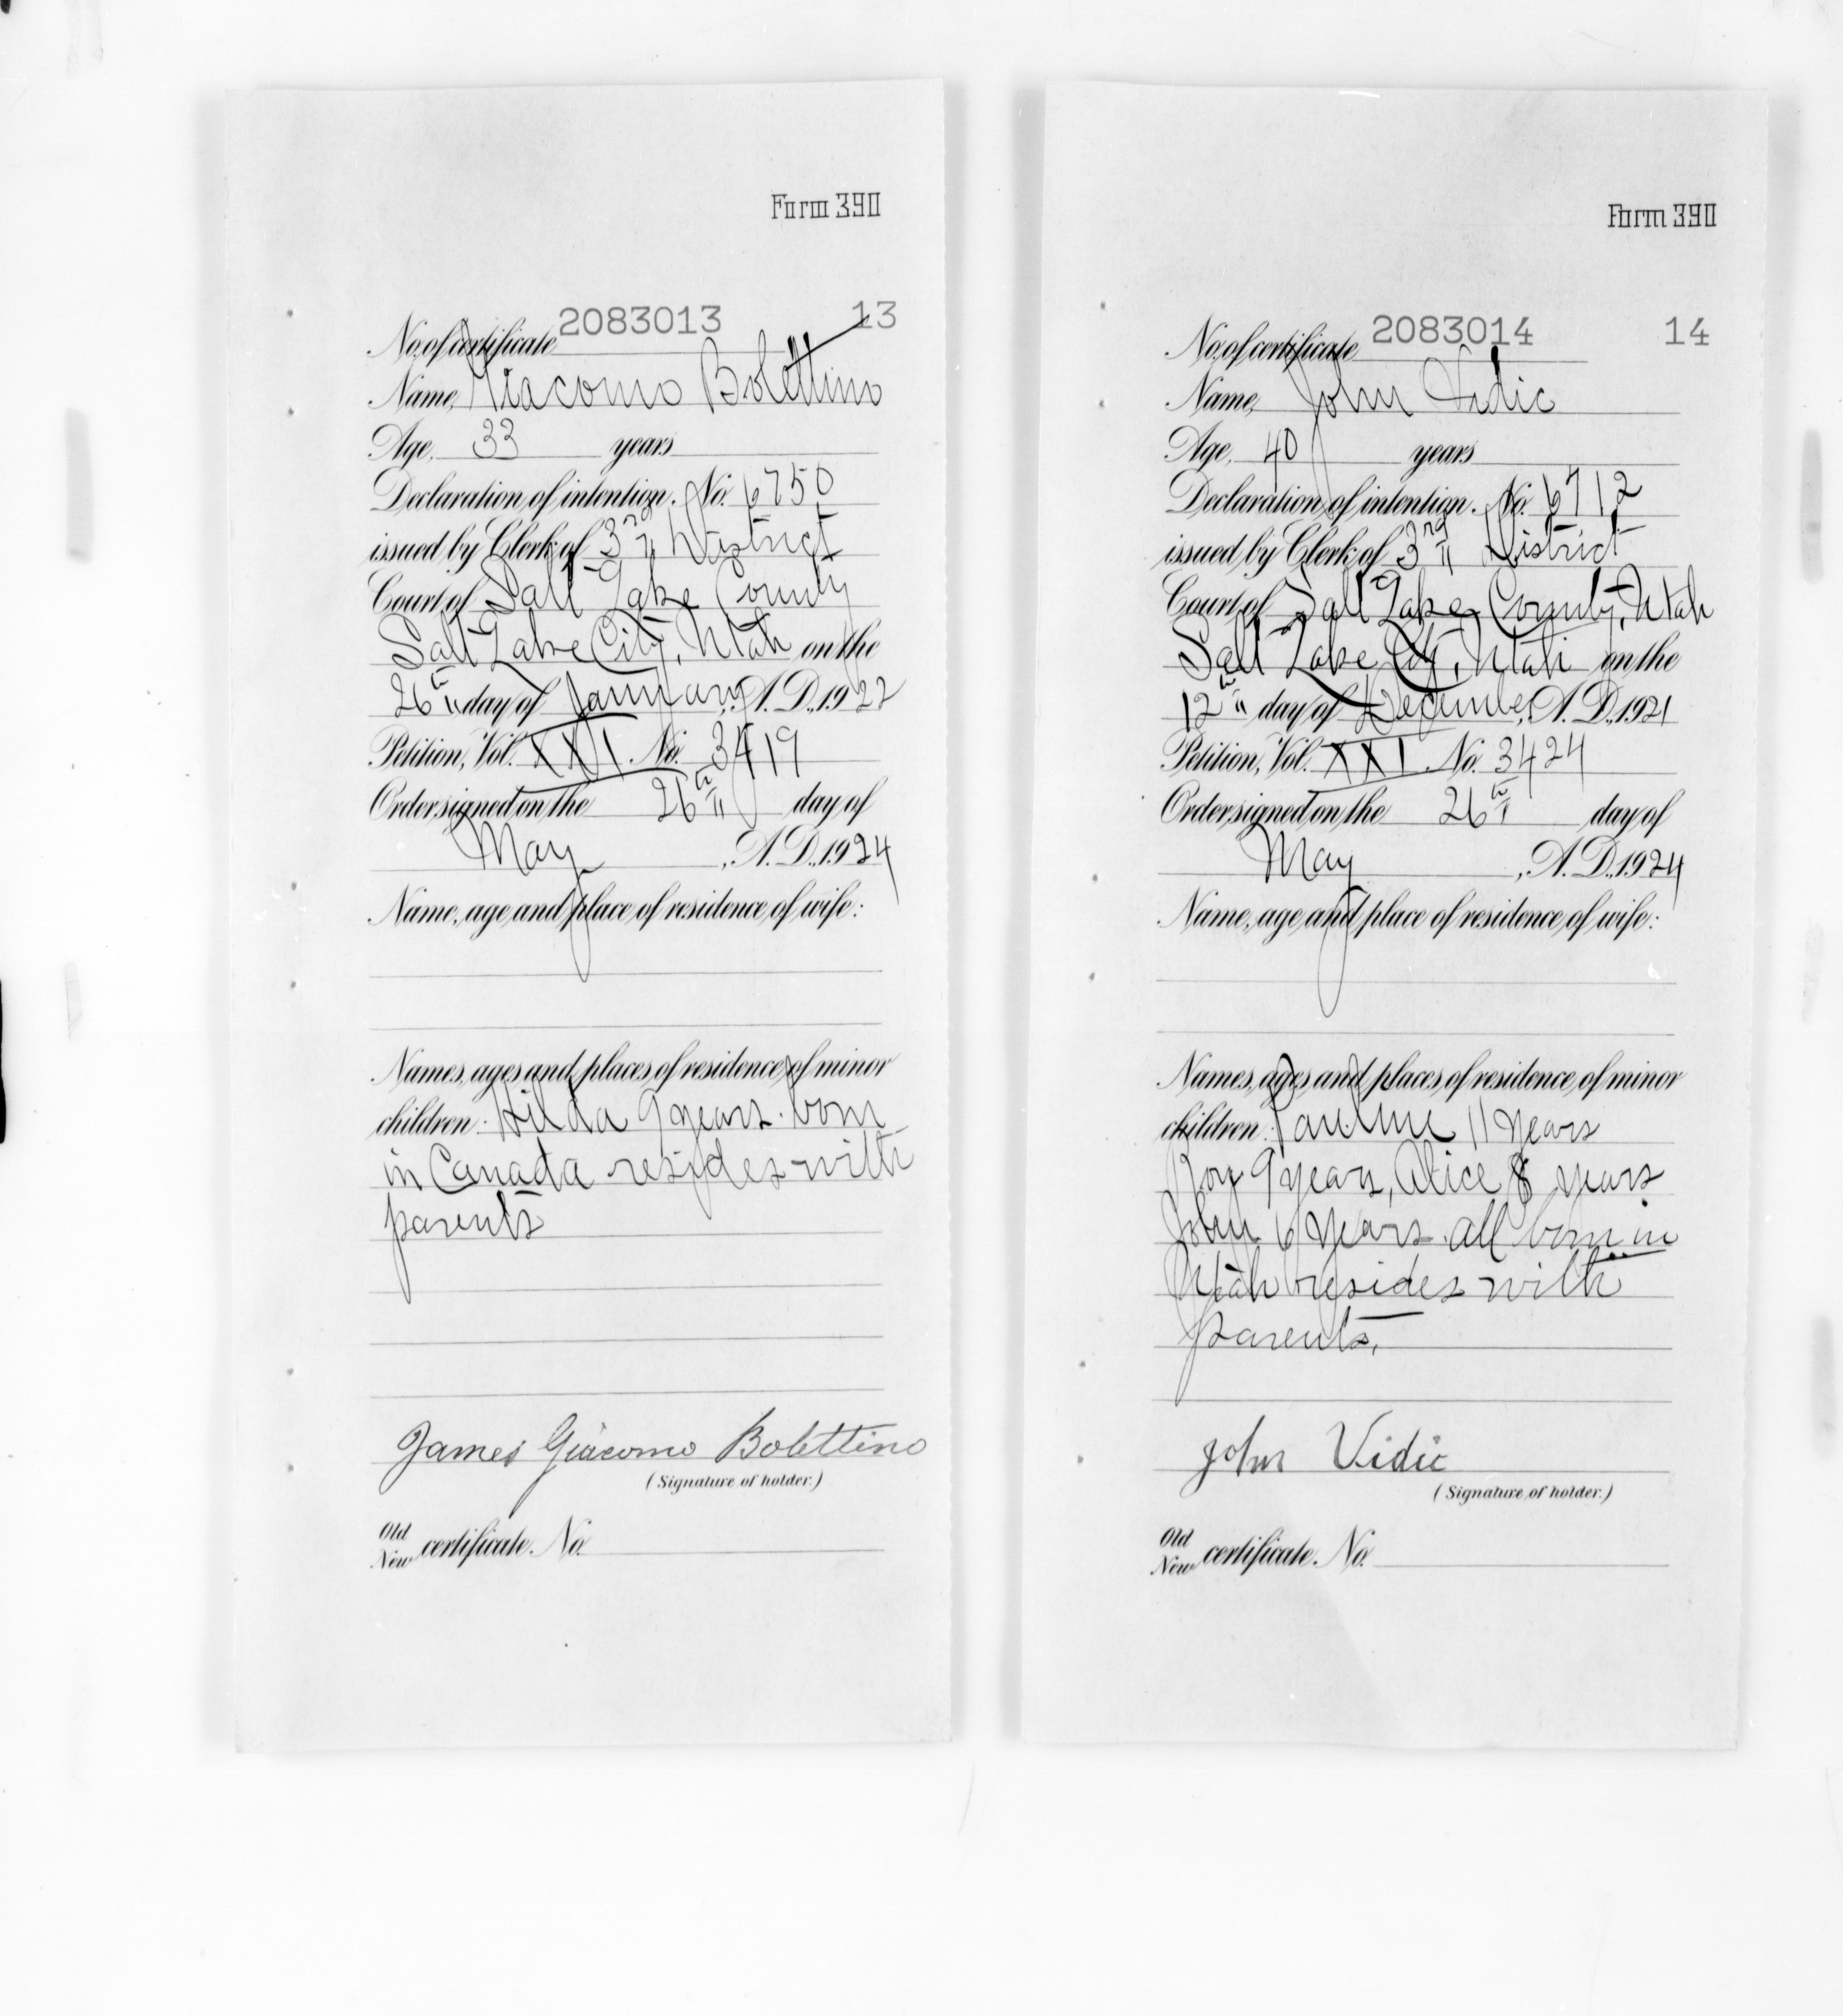 Form 390
No. of certificate 2083013 13
Name, Giacomo Bolettino
Age, 33 years
Declaration of intention, No. 6750
issued by Clerk of 3rd District
Court of Salt Lake County
Salt Lake City, Utah on the
26th day of January, A. D., 1922
Petition, Vol. XXI No. 3419
Order signed on the 26th day of
May, A. D., 1924
Name, age and place of residence of wife:
Names, ages and places of residence of minor
children: Hilda 9 years. born
in Canada resides with
parents
James Giacomo Bolettino
(Signature of holder.)
Old
New certificate. No.
Form 390
No. of certificate 2083014 14
Name, John Vidic
Age, 40 years
Declaration of intention, No. 6712
issued by Clerk of 3rd District
Court of Salt Lake County, Utah
Salt Lake City, Utah on the
12th day of December, A. D., 1921
Petition, Vol. XXI No. 3424
Order signed on the 26th day of
May, A. D., 1924
Name, age and place of residence of wife:
Names, ages and places of residence of minor
children: Pauline 11 years
Roy 9 years, Alice 8 years
John 6 years. all born in
Utah resides with
parents.
John Vidic
(Signature of holder.)
Old
New certificate. No.